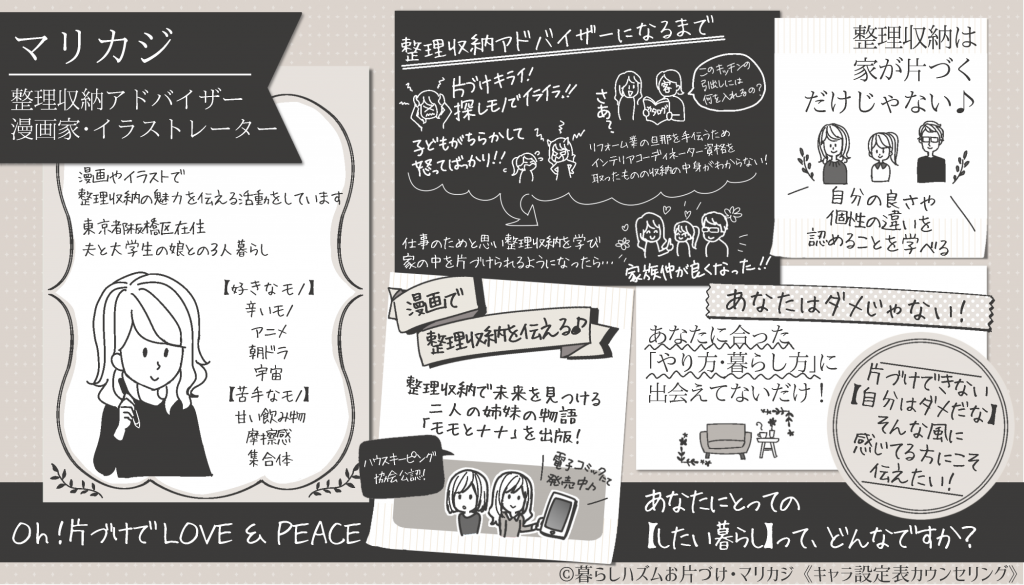 マリカジ
整理収納アドバイザー
漫画家・イラストレーター
漫画やイラストで
整理収納の魅力を伝える活動をしています
東京都板橋区在住
夫と大学生の娘との3人暮らし
【好きなモノ】
辛いモノ
アニメ
朝ドラ
宇宙
【苦手なモノ】
甘い飲み物
摩擦感
集合体
Oh!片づけでLOVE & PEACE
整理収納アドバイザーになるまで
片づけキライ!
探しモノでイライラ!!
子どもがちらかして
怒ってばっかり!!
さぁ?
このキッチンの
引出しには
何を入れるの?
リフォーム業の旦那を手伝うため
インテリアコーディネーター資格を
取ったものの収納の中身がわからない!
仕事のためと思い整理収納を学び
家の中を片づけられるようになったら…
家族仲が良くなった!!
整理収納は
家が片づく
だけじゃない♪
自分の良さや
個性の違いを
認めることを学べる
漫画で
整理収納を伝える♪
整理収納で未来を見つける
二人の姉妹の物語
「モモとナナ」を出版!
ハウスキーピング
協会公認!
電子コミックにて
発売中♪
あなたはダメじゃない!
あなたに合った
「やり方・暮らし方」に
出会えてないだけ!
片づけできない
【自分はダメだな】
そんな風に
感じてる方にこそ
伝えたい!
あなたにとっての
【したい暮らし】って、どんなですか?
©暮らしハズムお片づけ・マリカジ《キャラ設定表カウンセリング》